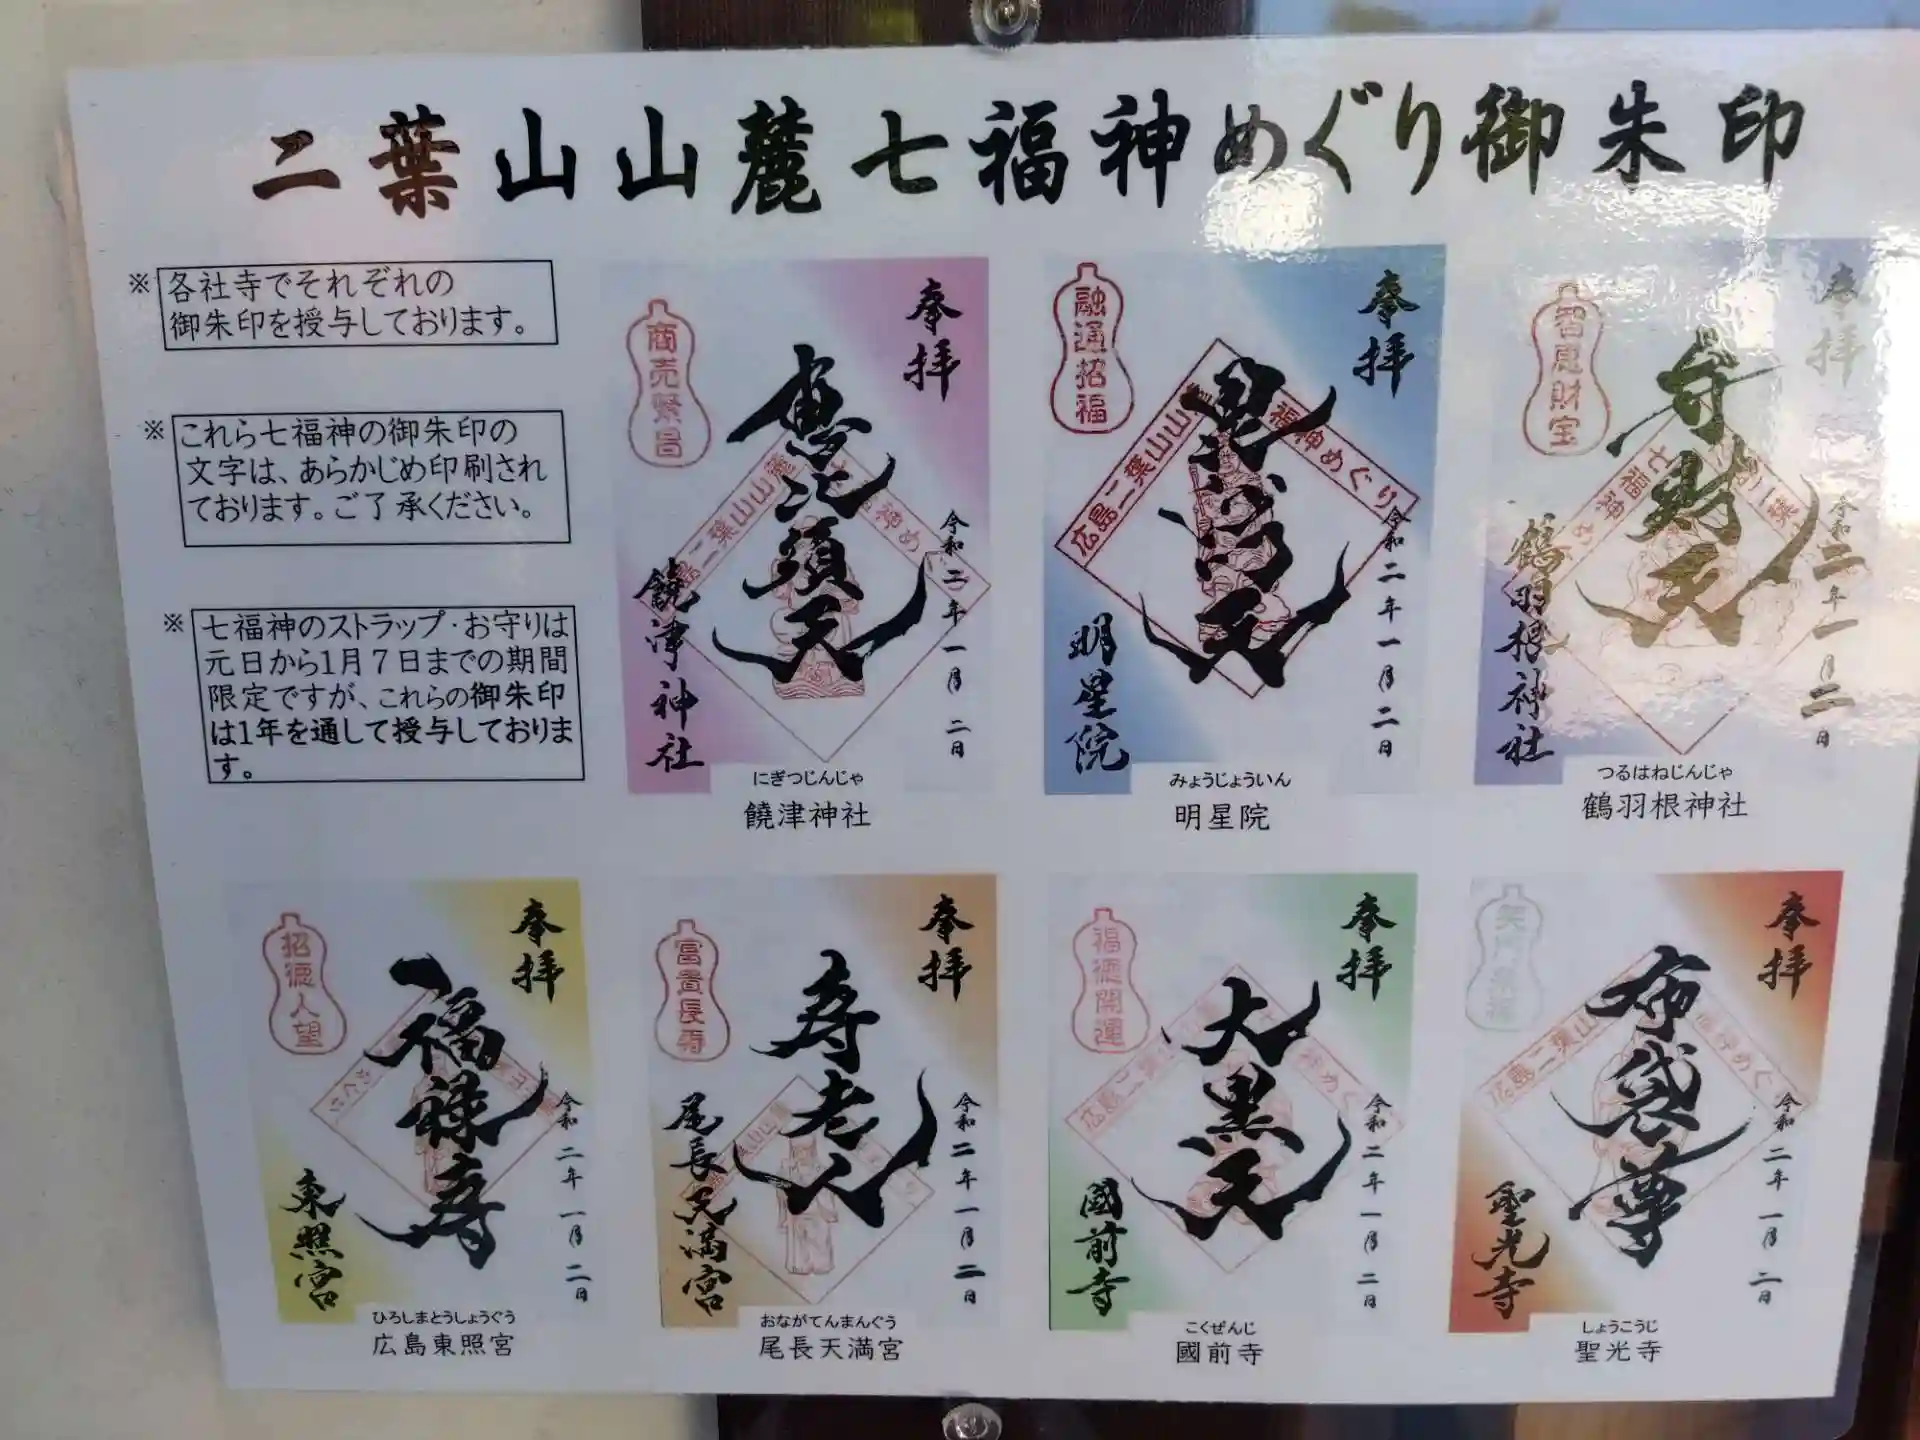 二葉山山麓七福神めぐり御朱印
※ 各社寺でそれぞれの
御朱印を授与しております。
※ これら七福神の御朱印の
文字は、あらかじめ印刷され
ております。ご了承ください。
※ 七福神のストラップ・お守りは
元日から1月7日までの期間
限定ですが、これらの御朱印
は1年を通して授与しておりま
す。
奉拝
商売繁昌
恵比須天
令和二年一月二日
饒津神社
にぎつじんじゃ
饒津神社
奉拝
融通招福
広島二葉山山
福神めぐり
毘沙門天
令和二年一月二日
明星院
みょうじょういん
明星院
奉拝
智恵財宝
七福神め
二葉
弁財天
令和二年一月二日
鶴羽根神社
つるはねじんじゃ
鶴羽根神社
奉拝
招徳人望
福禄寿
令和二年一月二日
東照宮
ひろしまとうしょうぐう
広島東照宮
奉拝
富貴長寿
寿老人
令和二年一月二日
尾長天満宮
おながてんまんぐう
尾長天満宮
奉拝
福徳開運
広島二
大黒天
令和二年一月二日
國前寺
こくぜんじ
國前寺
奉拝
広島二葉山
福神めぐ
布袋尊
令和二年一月二日
聖光寺
しょうこうじ
聖光寺